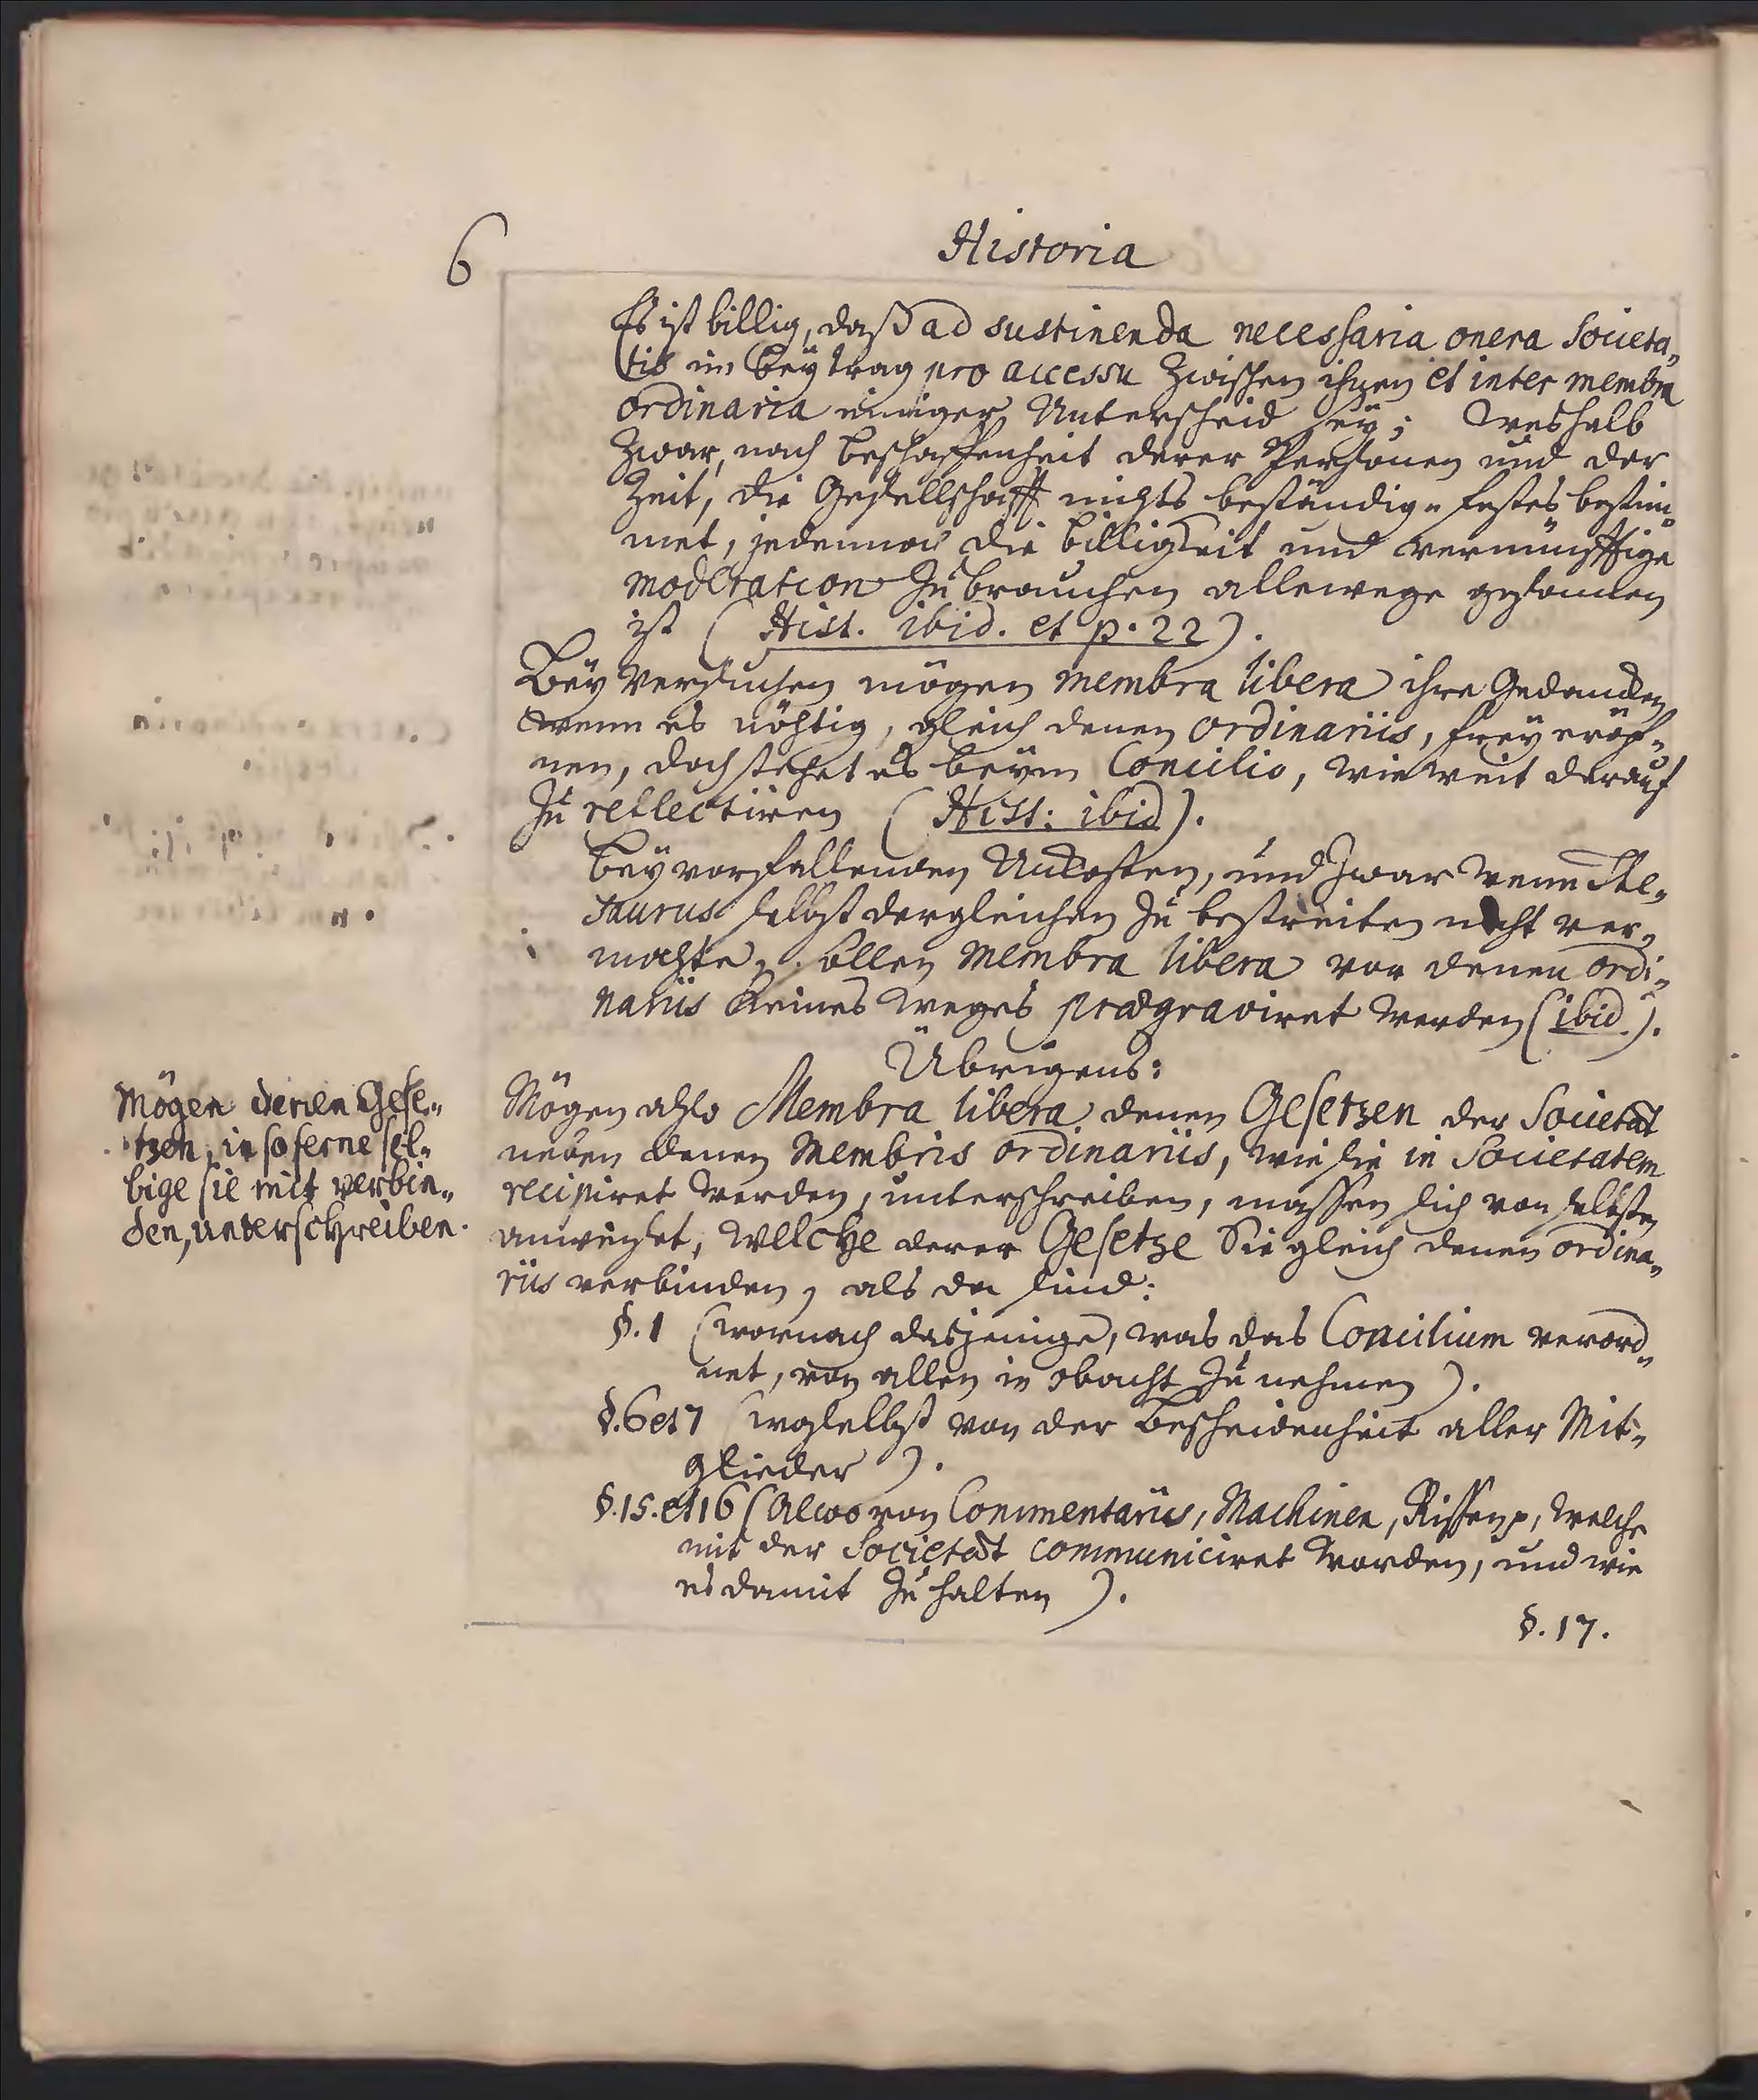 6
Historia
Es ist billig, daß ad sustinenda necessaria onera Societa„
tis im Beytrag pro accessu zwischen ihnen et inter membra
ordinaria einiger Unterscheid sey; weshalb
zwar, nach beschaffenheit derer Persohnen und der
Zeit, die Gesellschafft nichts beständig-festes bestim„
met, jedennoch die billigkeit und vernünfftige
moderation zu brauchen allewege gesonnen
ist (Hist. ibid. et p. 22).
Bey Versuchen mögen membra libera ihre Gedancken,
wenn es nöhtig, gleich denen ordinariis, frey eröf„
nen, doch stehet es beym Concilio, wie weit darauf
zu reflectiren (Hist: ibid).
Bey vorfallenden Unkosten, und zwar wenn The„
saurus selbst dergleichen zu bestreiten nicht ver„
mochte, sollen Membra libera vor denen ordi„
nariis keines weges prægraviret werden (ibid.).
Übrigens:
Mögen denen Gese„
tzen, in soferne sel„
bige sie mit verbin„
den, unterschreiben.
Mögen also Membra libera denen Gesetzen der Societät
neben denen Membris ordinariis, wie sie in Societatem
recipiret werden, unterschreiben, massen sich von selbsten
anweiset, welche derer Gesetze Sie gleich denen ordina„
riis verbinden, als da sind:
§. 1 (wornach dasjenige, was das Concilium verord„
net, von allen in obacht zu nehmen).
§. 6 et 7 (woselbst von der Bescheidenheit aller Mit„
glieder).
§. 15. et 16 (Alwo von Commentariis, Machinen, Rissen p, welche
mit der Societät communiciret worden, und wie
es damit zu halten).
§. 17.